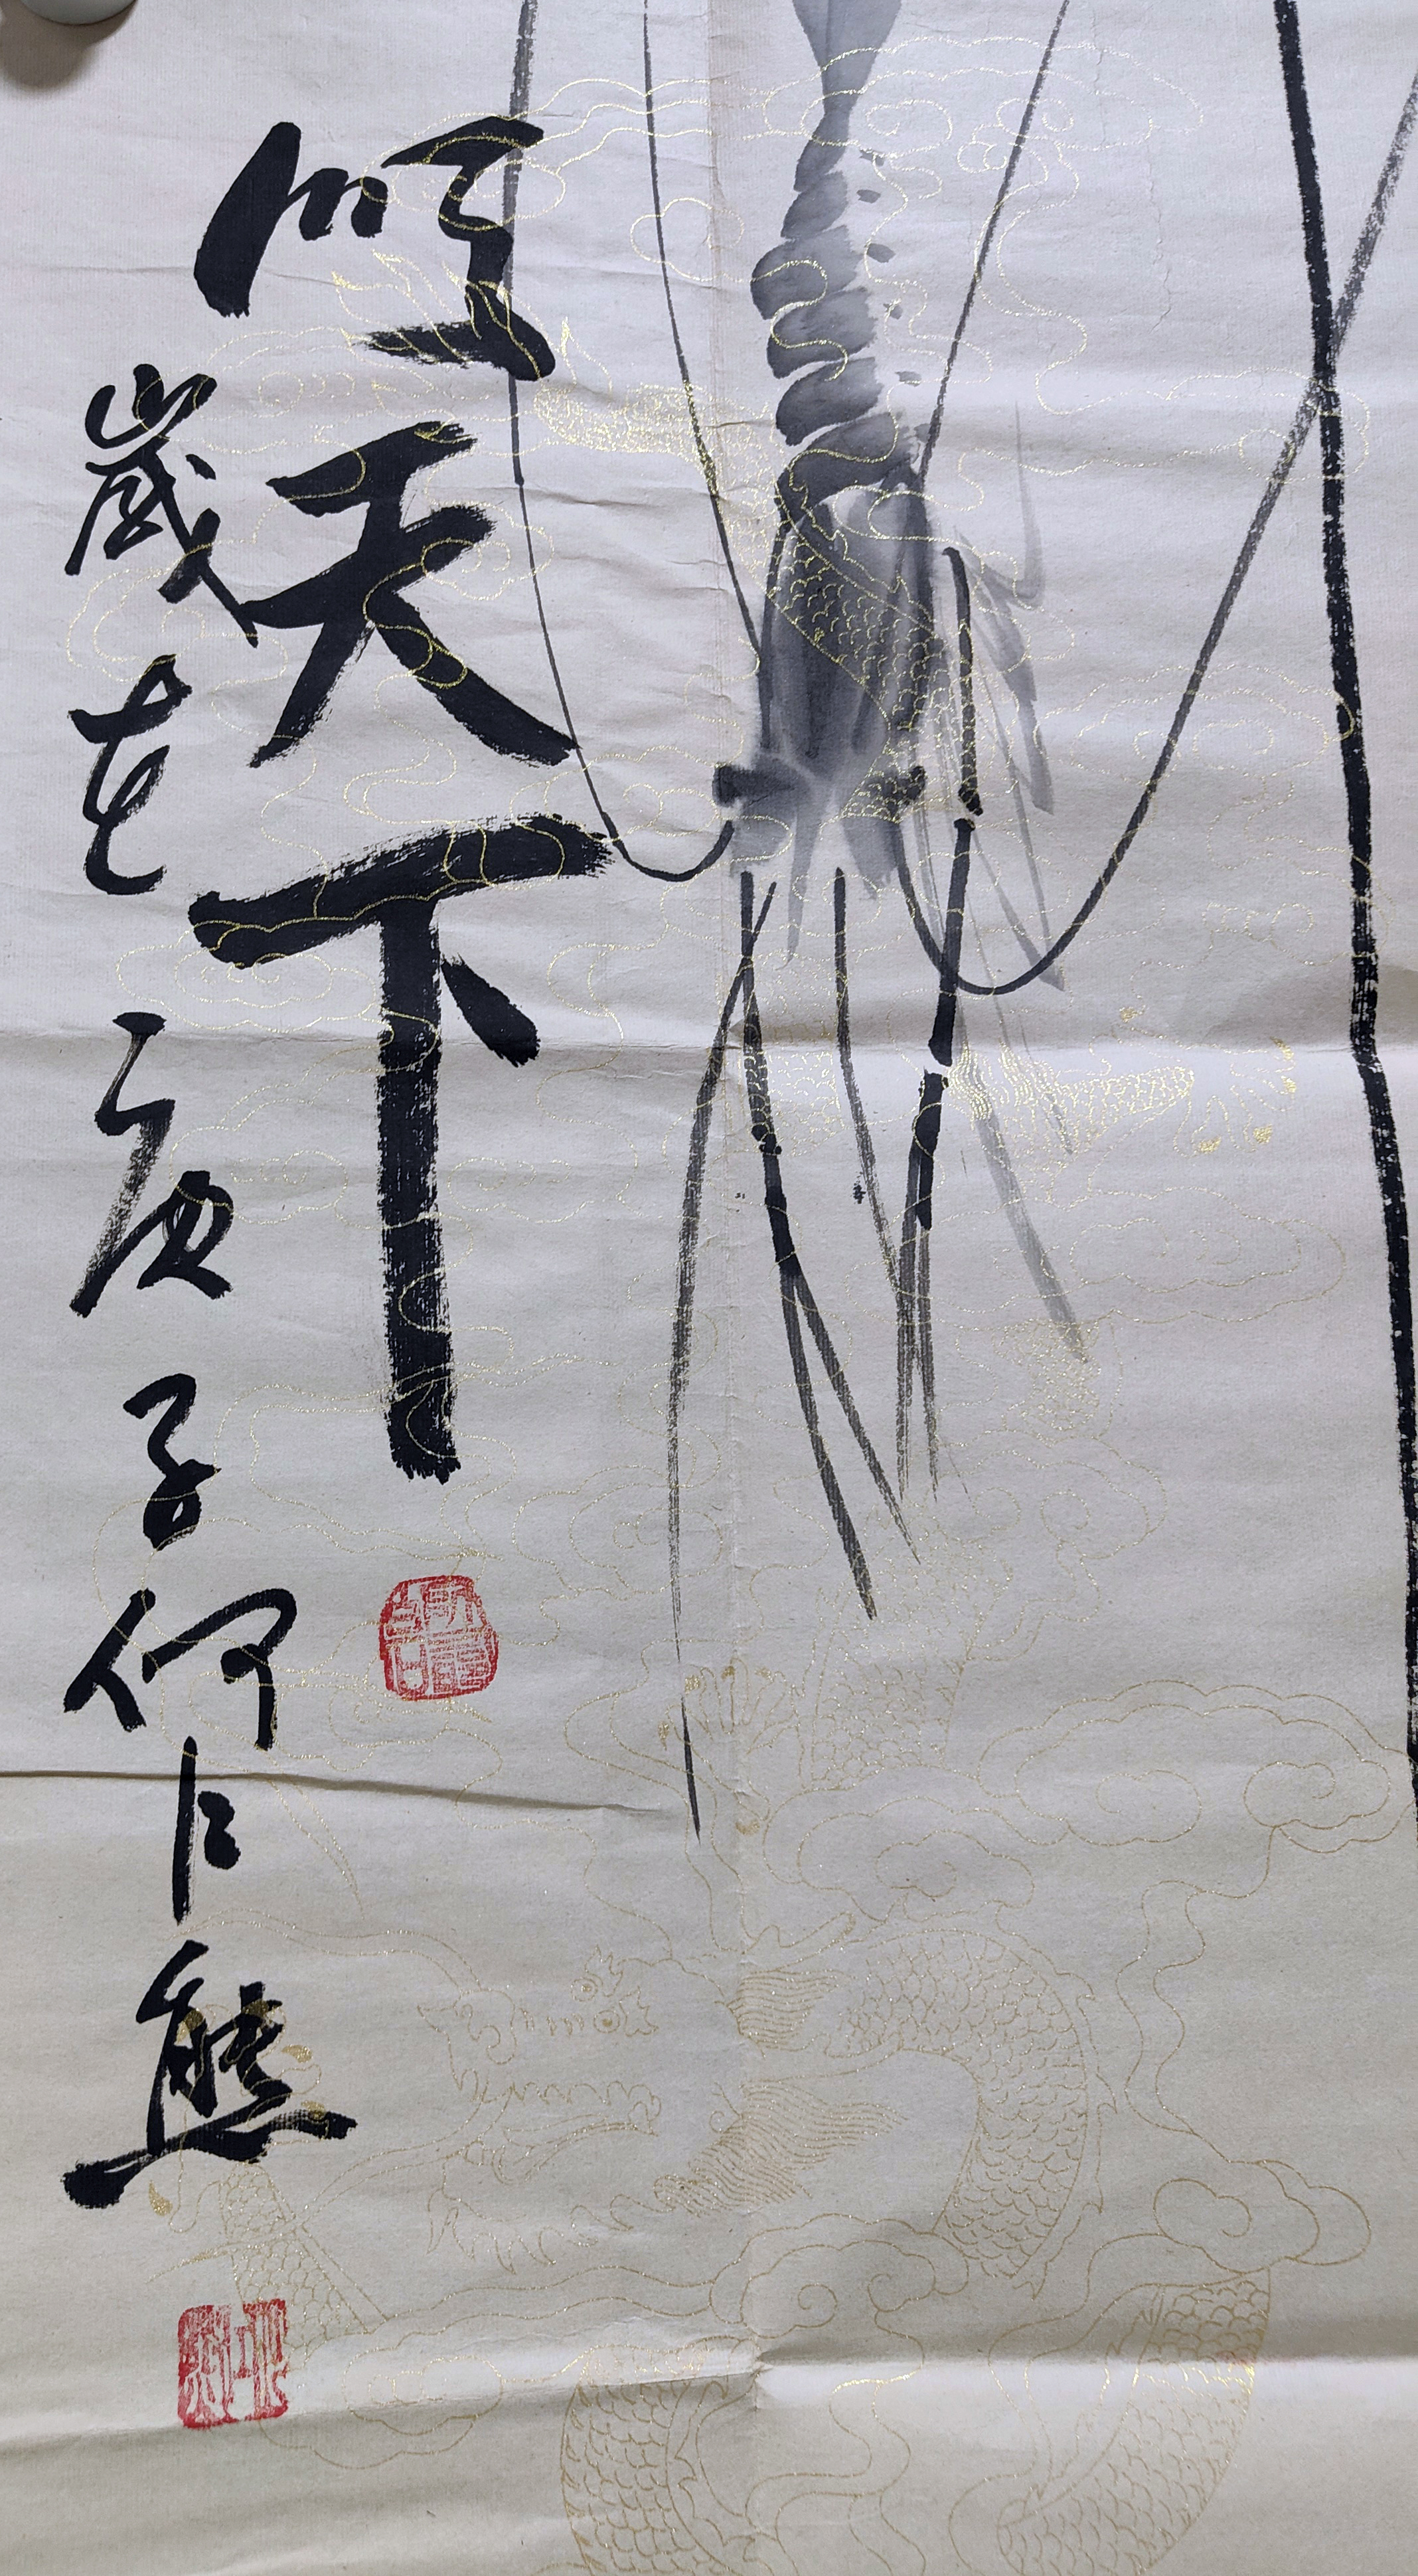 顺天下
歲在庚子何仁熊